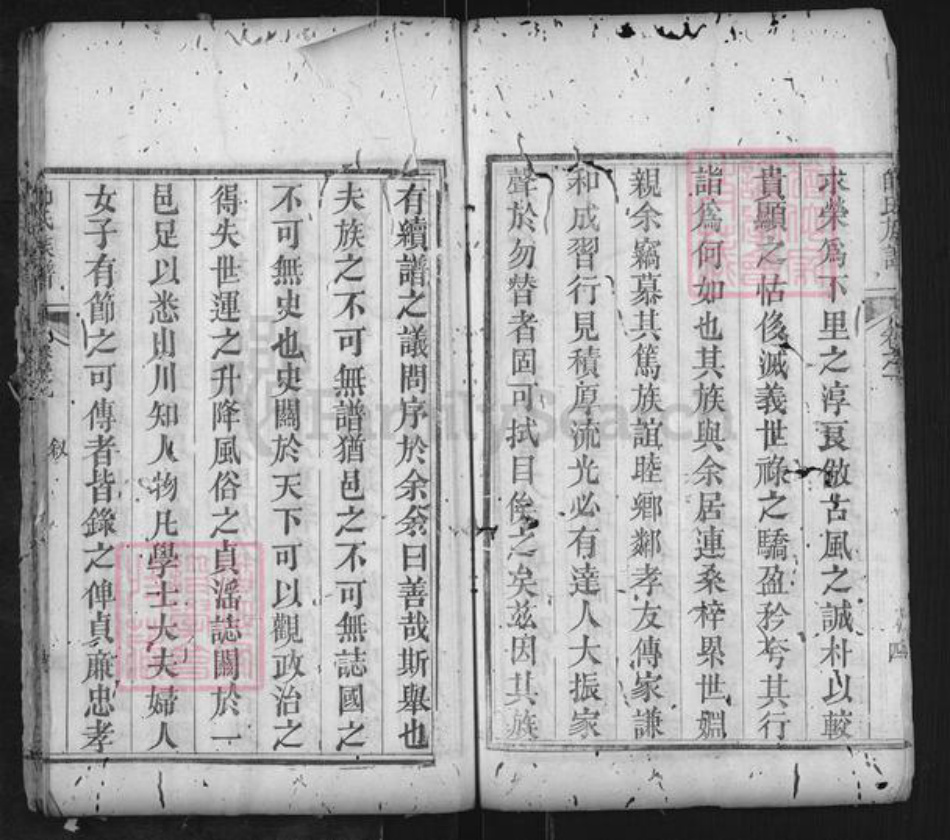 求榮爲不里之淳良倣古風之誠朴以較
貴顯之怙侈滅義世祿之驕盈矜夸其行
詣爲何如也其族與余居連桑梓累世姻
親余竊慕其篤族誼睦鄉鄰孝友傳家謙
和成習行見積厚流光必有達人大振家
聲於勿替者固可拭目俟之矣茲因其族
有續譜之議問序於余余曰善哉斯舉也
夫族之不可無譜猶邑之不可無誌國之
不可無史也史關於天下可以觀政治之
得失世運之升降風俗之貞滛誌關於一
邑足以悉山川知人物凡學士大夫婦人
女子有節之可傳者皆錄之俾貞廉忠孝
氏族譜
敘
FamilySearch